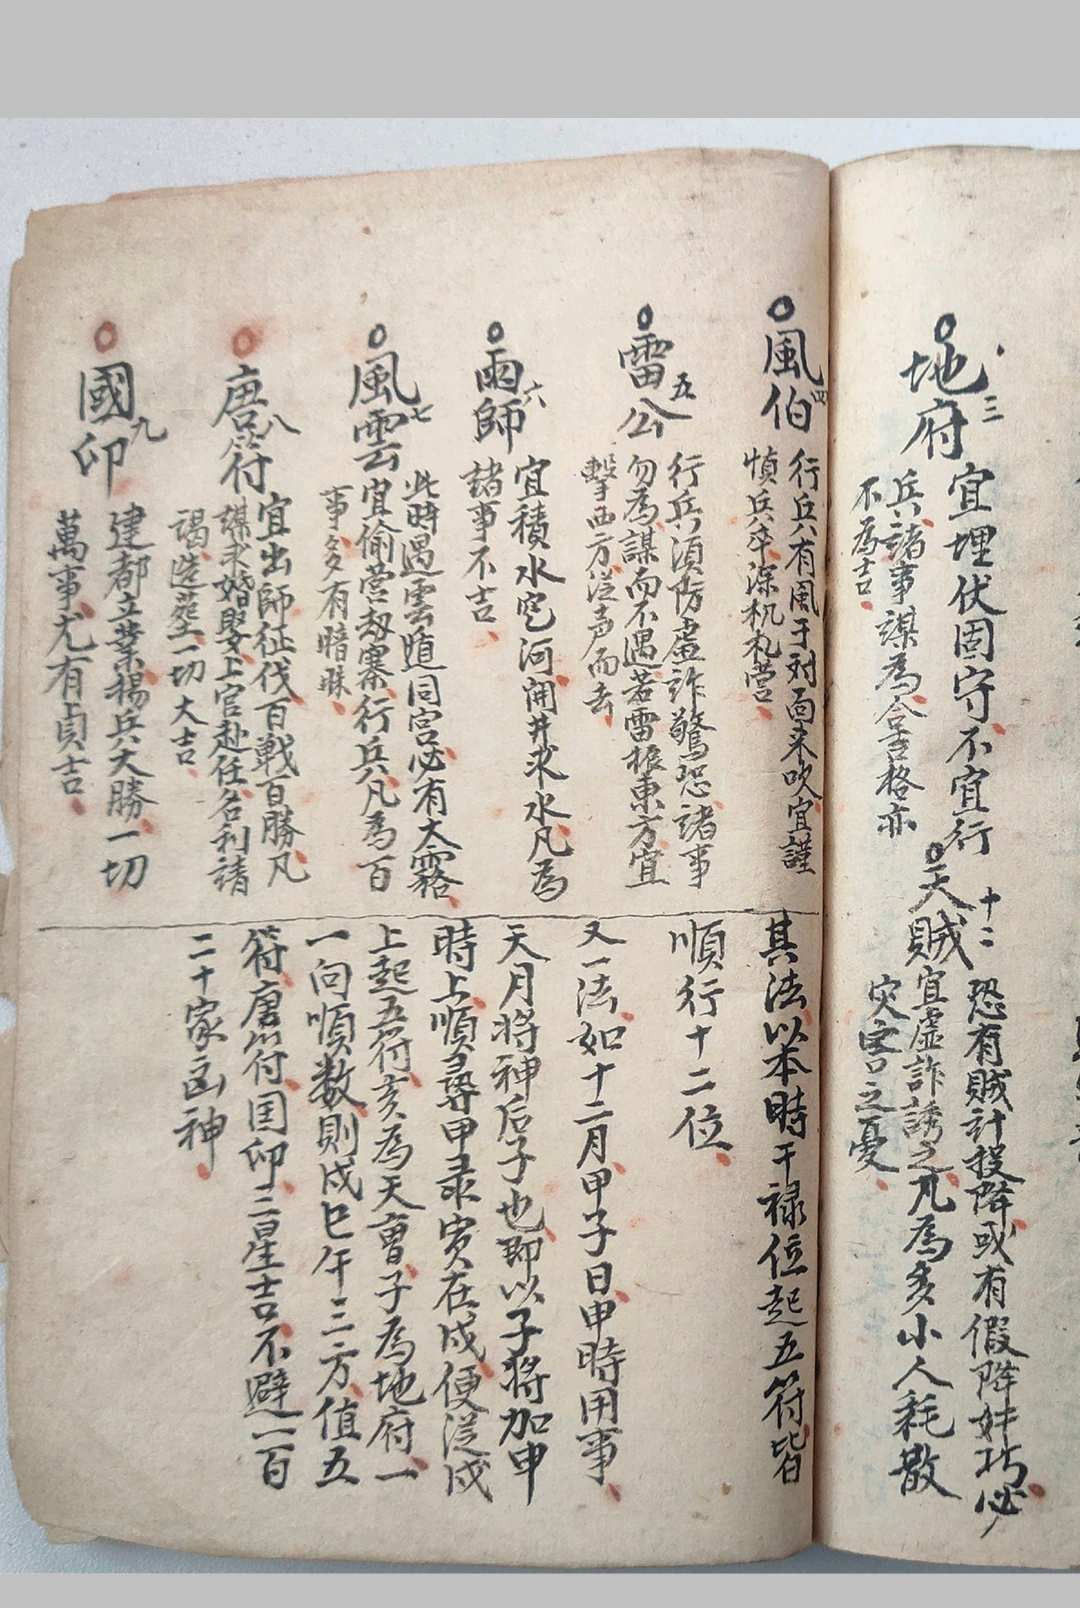 地府 三
宜埋伏固守不宜行
兵諸事謀為合吉格亦
不為吉
天賊 十二
恐有賊計投降或有假降奸巧必
宜虛詐誘之凡為多小人耗散
灾害之憂
風伯 四
行兵有風于対面来吹宜謹
慎兵卒深机札营
雷公 五
行兵須防虛詐驚恐諸事
勿為謀而不遇若雷振東方宜
擊西方從声而去
雨師 六
宜積水穵河開井求水凡為
諸事不吉
風雲 七
此時遇雲遁同宮必有大霧
宜偷营刼寨行兵凡為百
事多有暗昧
唐符 八
宜出師征伐百戰百勝凡
謀求婚娶上官赴任名利請
謁造塟一切大吉
國印 九
建都立業揚兵大勝一切
萬事尤有貞吉
其法以本時干禄位起五符皆
順行十二位
又一法如十二月甲子日申時用事
天月将神后子也即以子将加申
時上順尋甲录寅在戌便從戌
上起五符亥為天曹子為地府一
一向順数則戌巳午三方值五
符唐符国印三星吉不避一百
二十家凶神